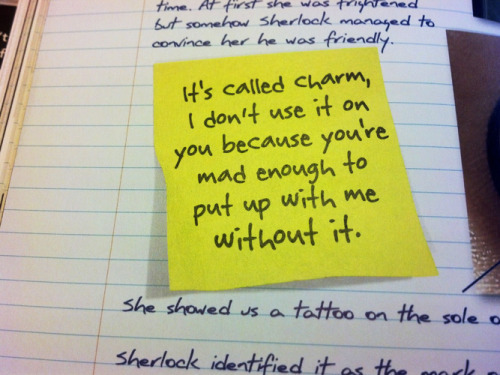 time. At first she was frightened
but somehow Sherlock managed to
convince her he was friendly.
It's called charm,
I don't use it on
you because you're
mad enough to
put up with me
without it.
She showed us a tattoo on the sole
Sherlock identified it as the mark